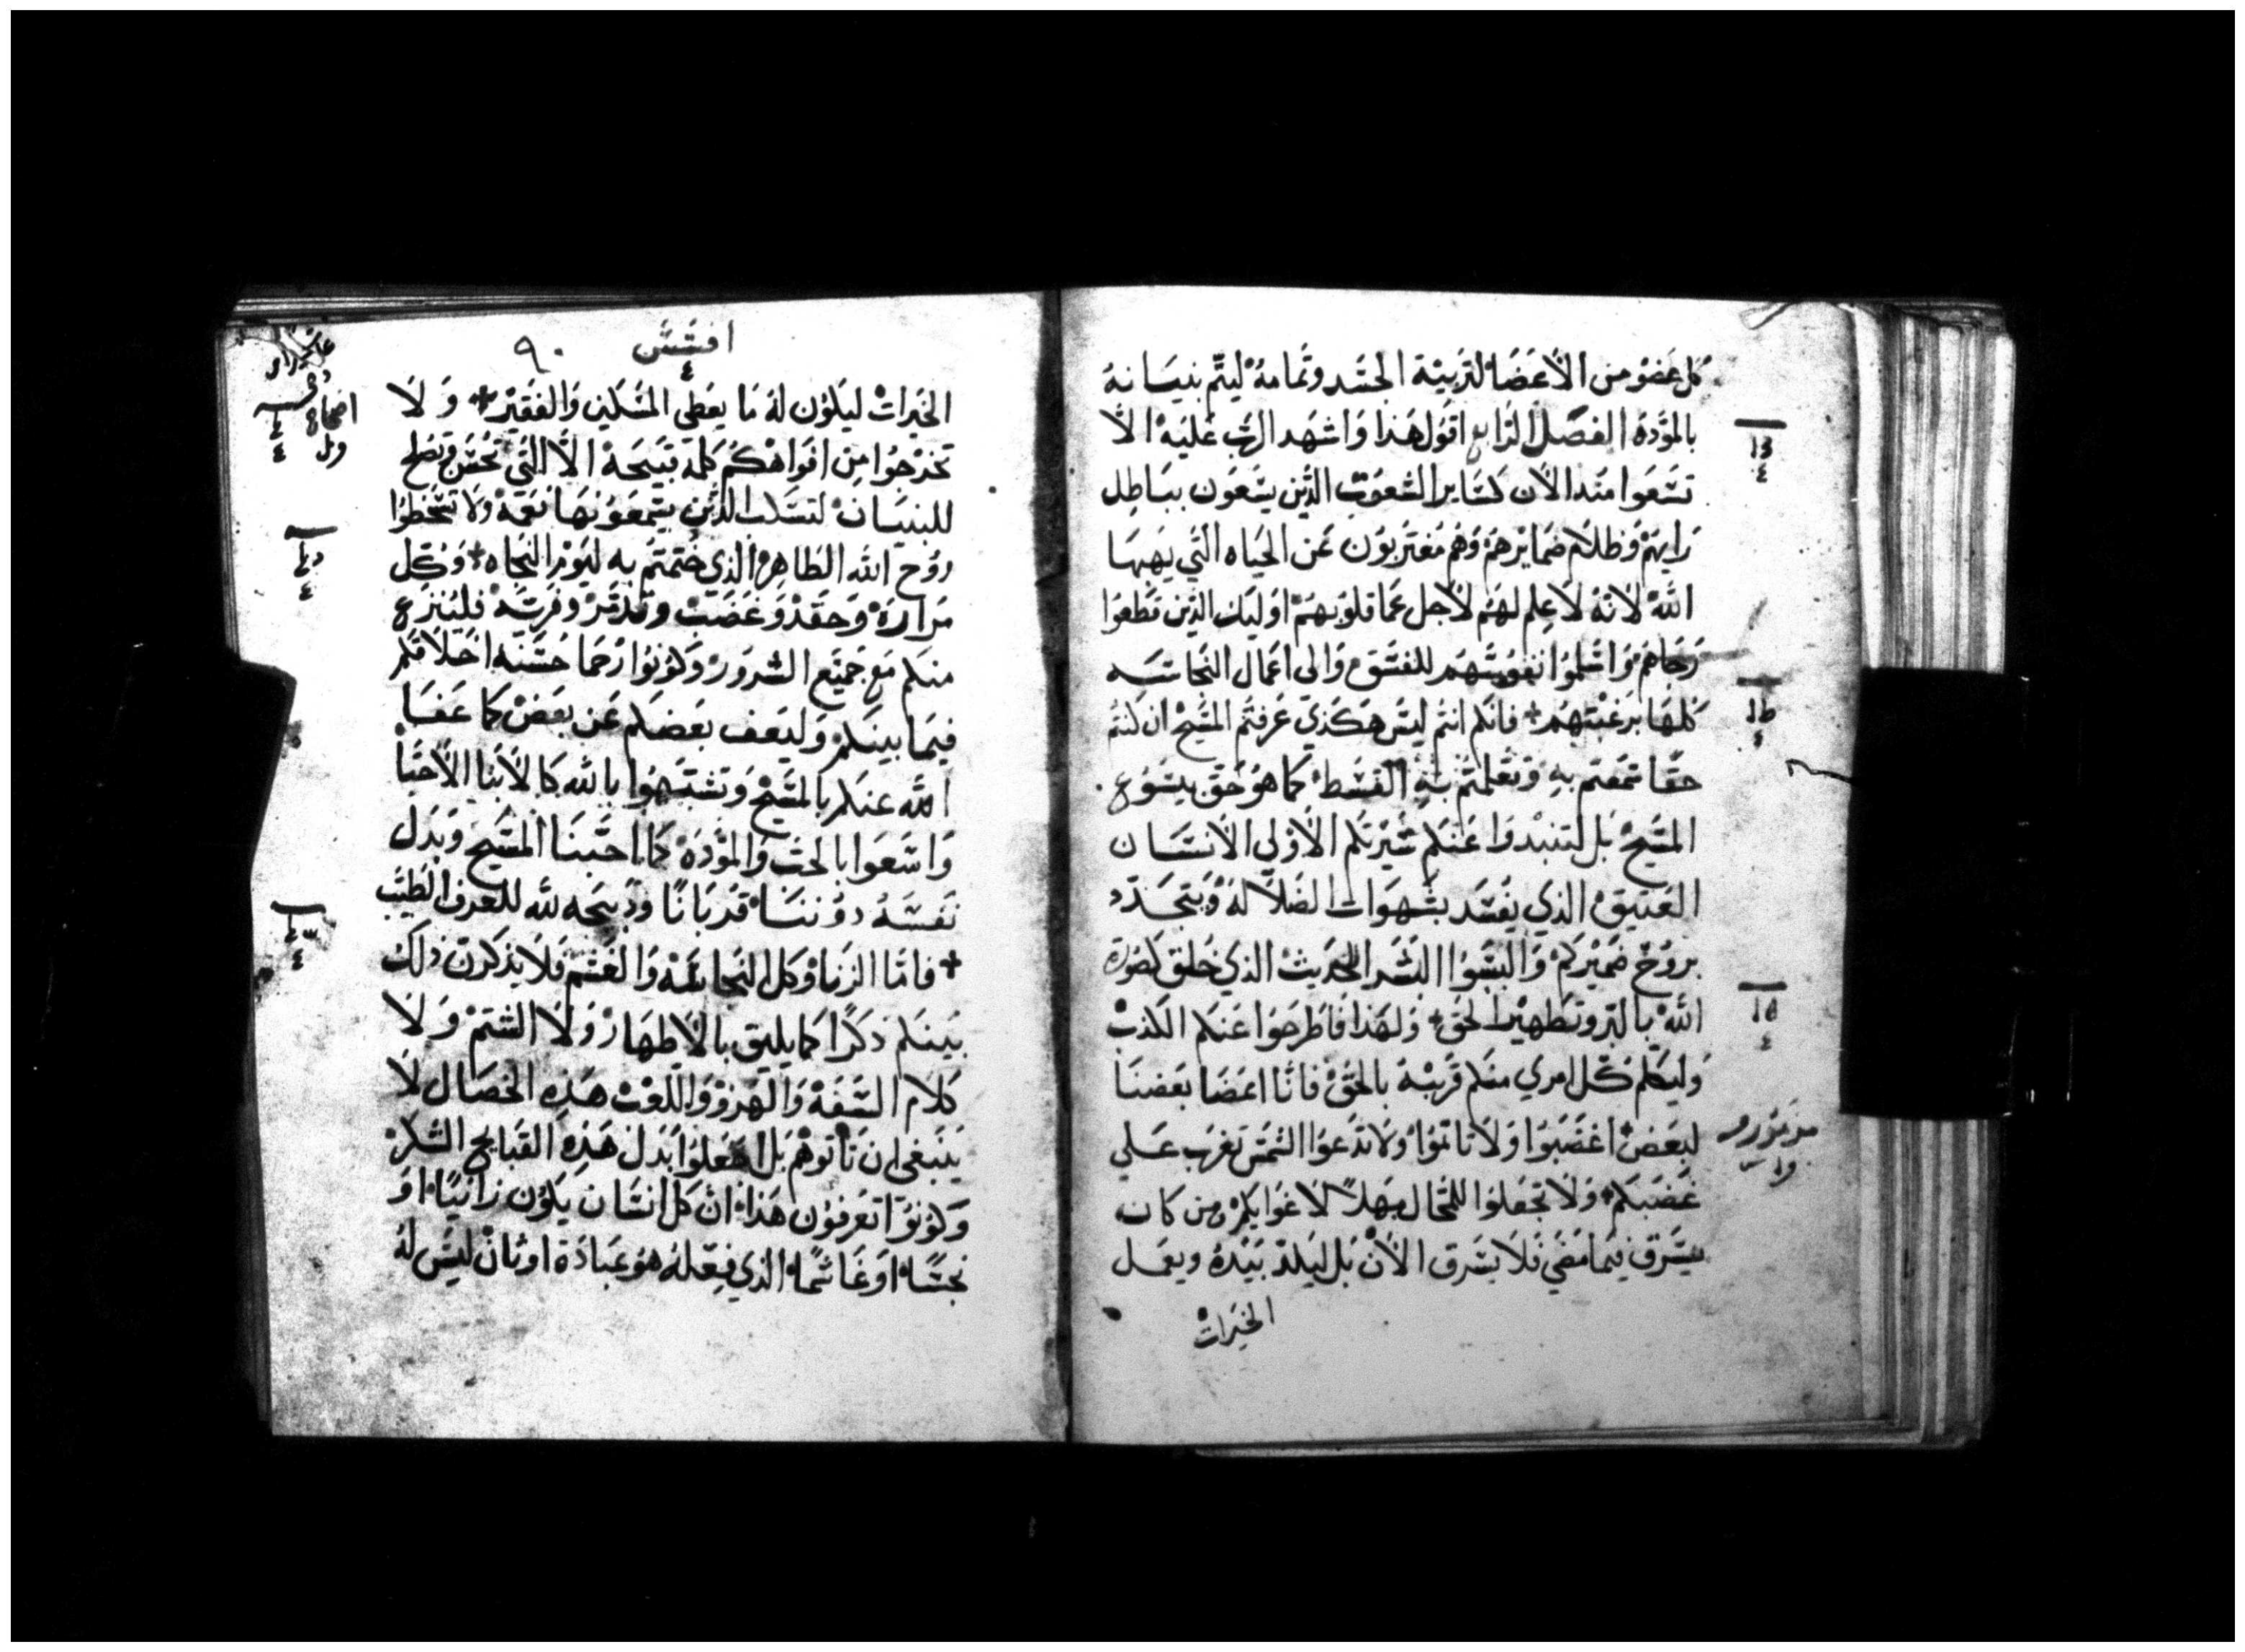 كل عَضوُ من الاَعضَا لتربيَة الجسَد وتمامهُ ليتم بنيَانهُ
بالموَدهَ الفصَل الرَابع اقوُل هَذا وَاشهَد الرَب عَليَه الا
تسَعَوا منَد الاَن كسَاير الشعوَب الذَين يسَعَون بباطِل
رَايهَم وَظلام ضمايرَهم وَهم مغتَربوَن عَن الحيَاه التَي يَهبهَا
اللهَ لانهُ لاَ عِلم لهَم لاَجل عَما قلوَبهَم اوَليك الذَين قطعَوا
رَجَاهمَ وَاسَلموُا نفوسَهَم للفسَق وَالى اعَمال النجَاسَه
كلهَا برَغبتهَم + فانكم انتم ليسَ هَكذي عَرفتم المسَيح ان كنتم
حقَا سمَعتم به وَتعَلمتم بهِ القسَط كما هوُ حَق بيسَوُع
المسَيحَ بَل لتنبدوَا عَنكم سَيرَتكم الاَوُلي الاَنسَان
العَتيق الذي يفسَد بشهوَات الضَلالهَ وَيتجَدّد
برَوُح ضَميَركم وَالبسَوُا البشَر الحَديث الذي خُلق كصَورَة
اللهَ بالبَر وتطهَير الحَق + وَلهَذا فاطَرحوَا عَنكم الكذب
وَليكلم كُل امري منكم قرَيبَهُ بالحَقَ فانَا اعضَا بعَضنَا
لبعَض + اغضَبوَا وَلاَ تاثموُا وَلاَ تدَعوَا الشمسَ تغرَب عَلي
غَضبكم + وَلاَ تجعَلوُا للمحَال مهَلاً لاَغوَايكم ومن كان
يسَرَق فيمَا مَضي فلاَ يسَرق الاَن بَل ليَكدّ بيَدهُ ويعمَل
الخيَرات
١٦
٤
١٥
٤
مزمَوُر
افسَسَ
٤
٩٠
الخيرَات ليَكوُن لهُ مَا يعَطى المسَكين وَالفقيَر + وَ لاَ
تخرَجوُا مِن افوَاهكم كلمة قبيَحَة الاَ التَي تحُسَن وَتصُلح
للبنيَان لتسَلب الذَين يسَمعَوُنهَا نعَمة وَلاَ تسَخطوُا
روُح الله الطَاهِر الذي ختمتم به ليوَم النجَاه + وَكُل
مرَارَة وَحقَد وَغضَب وتدمر وفريَه فليُنزَع
منكم مَع جميَع الشرَوَر وَكوُنوُا رَحما حسَنه اخلاقكم
فيمَا بينَكم وَليَعف بعَضكم عَن بعَض كما عَفَا
الله عنكم بالمسَيح وَتشبَهوُا بالله كالاَبنا الاَحبَا
وَاسَعَوا بالحَب وَالموَدَة كما احبنَا المسَيح وَبَدل
نفسَهُ دوُننَا قربَانًا وذبيَحه لله للعرف الطَيب
+ فامَا الزنا وَكل النجَاسَة وَالغشم فَلاَ يذكرَن ذلك
بيَنكم ذكرًا كما يليَق بالاَطهَار وَلاَ الشتَم وَ لاَ
كلام السَفَه وَالهزوُ وَاللعب هَذهِ الخصَال لاَ
ينَبغي ان تاتوهَم بَل اجعَلوُا بَدل هَذهِ القبَايح الشكر
وَكوُنوُا تعَرفوُن هَذا ان كل انسَان يكوُن زَانيًا اوَ
نجسًا اوَ غَاشمًا الذي فِعلهُ هوُ عبَادَة اوثان ليسَ لهُ